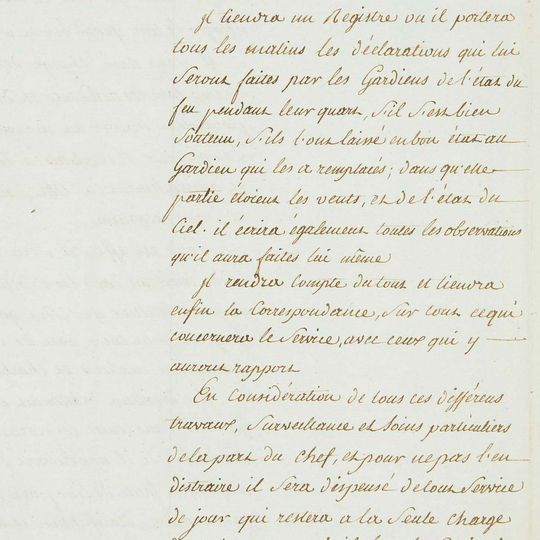 Il tiendra un Registre ou il portera
tous les matins les déclarations qui lui
Seront faites par les Gardiens de l'état du
feu pendant leur quart, S'il S'est bien
Soutenu, S'ils l'ont laissé en bon état au
Gardien qui les a remplacés; dans qu'elle
partie étoient les vents, et de l'état du
Ciel. il écrira également toutes les observations
qu'il aura faites lui même
Il rendra Compte du tout et tiendra
enfin la Correspondance, Sur tout ce qui
concernera le Service, avec ceux qui y
auront rapport
En Considération de tous ces différens
travaux, Surveillance et Soins particuliers
de la part du Chef, et pour ne pas l'en
distraire il Sera dispensé de tout Service
de jour qui restera a la Seule Charge